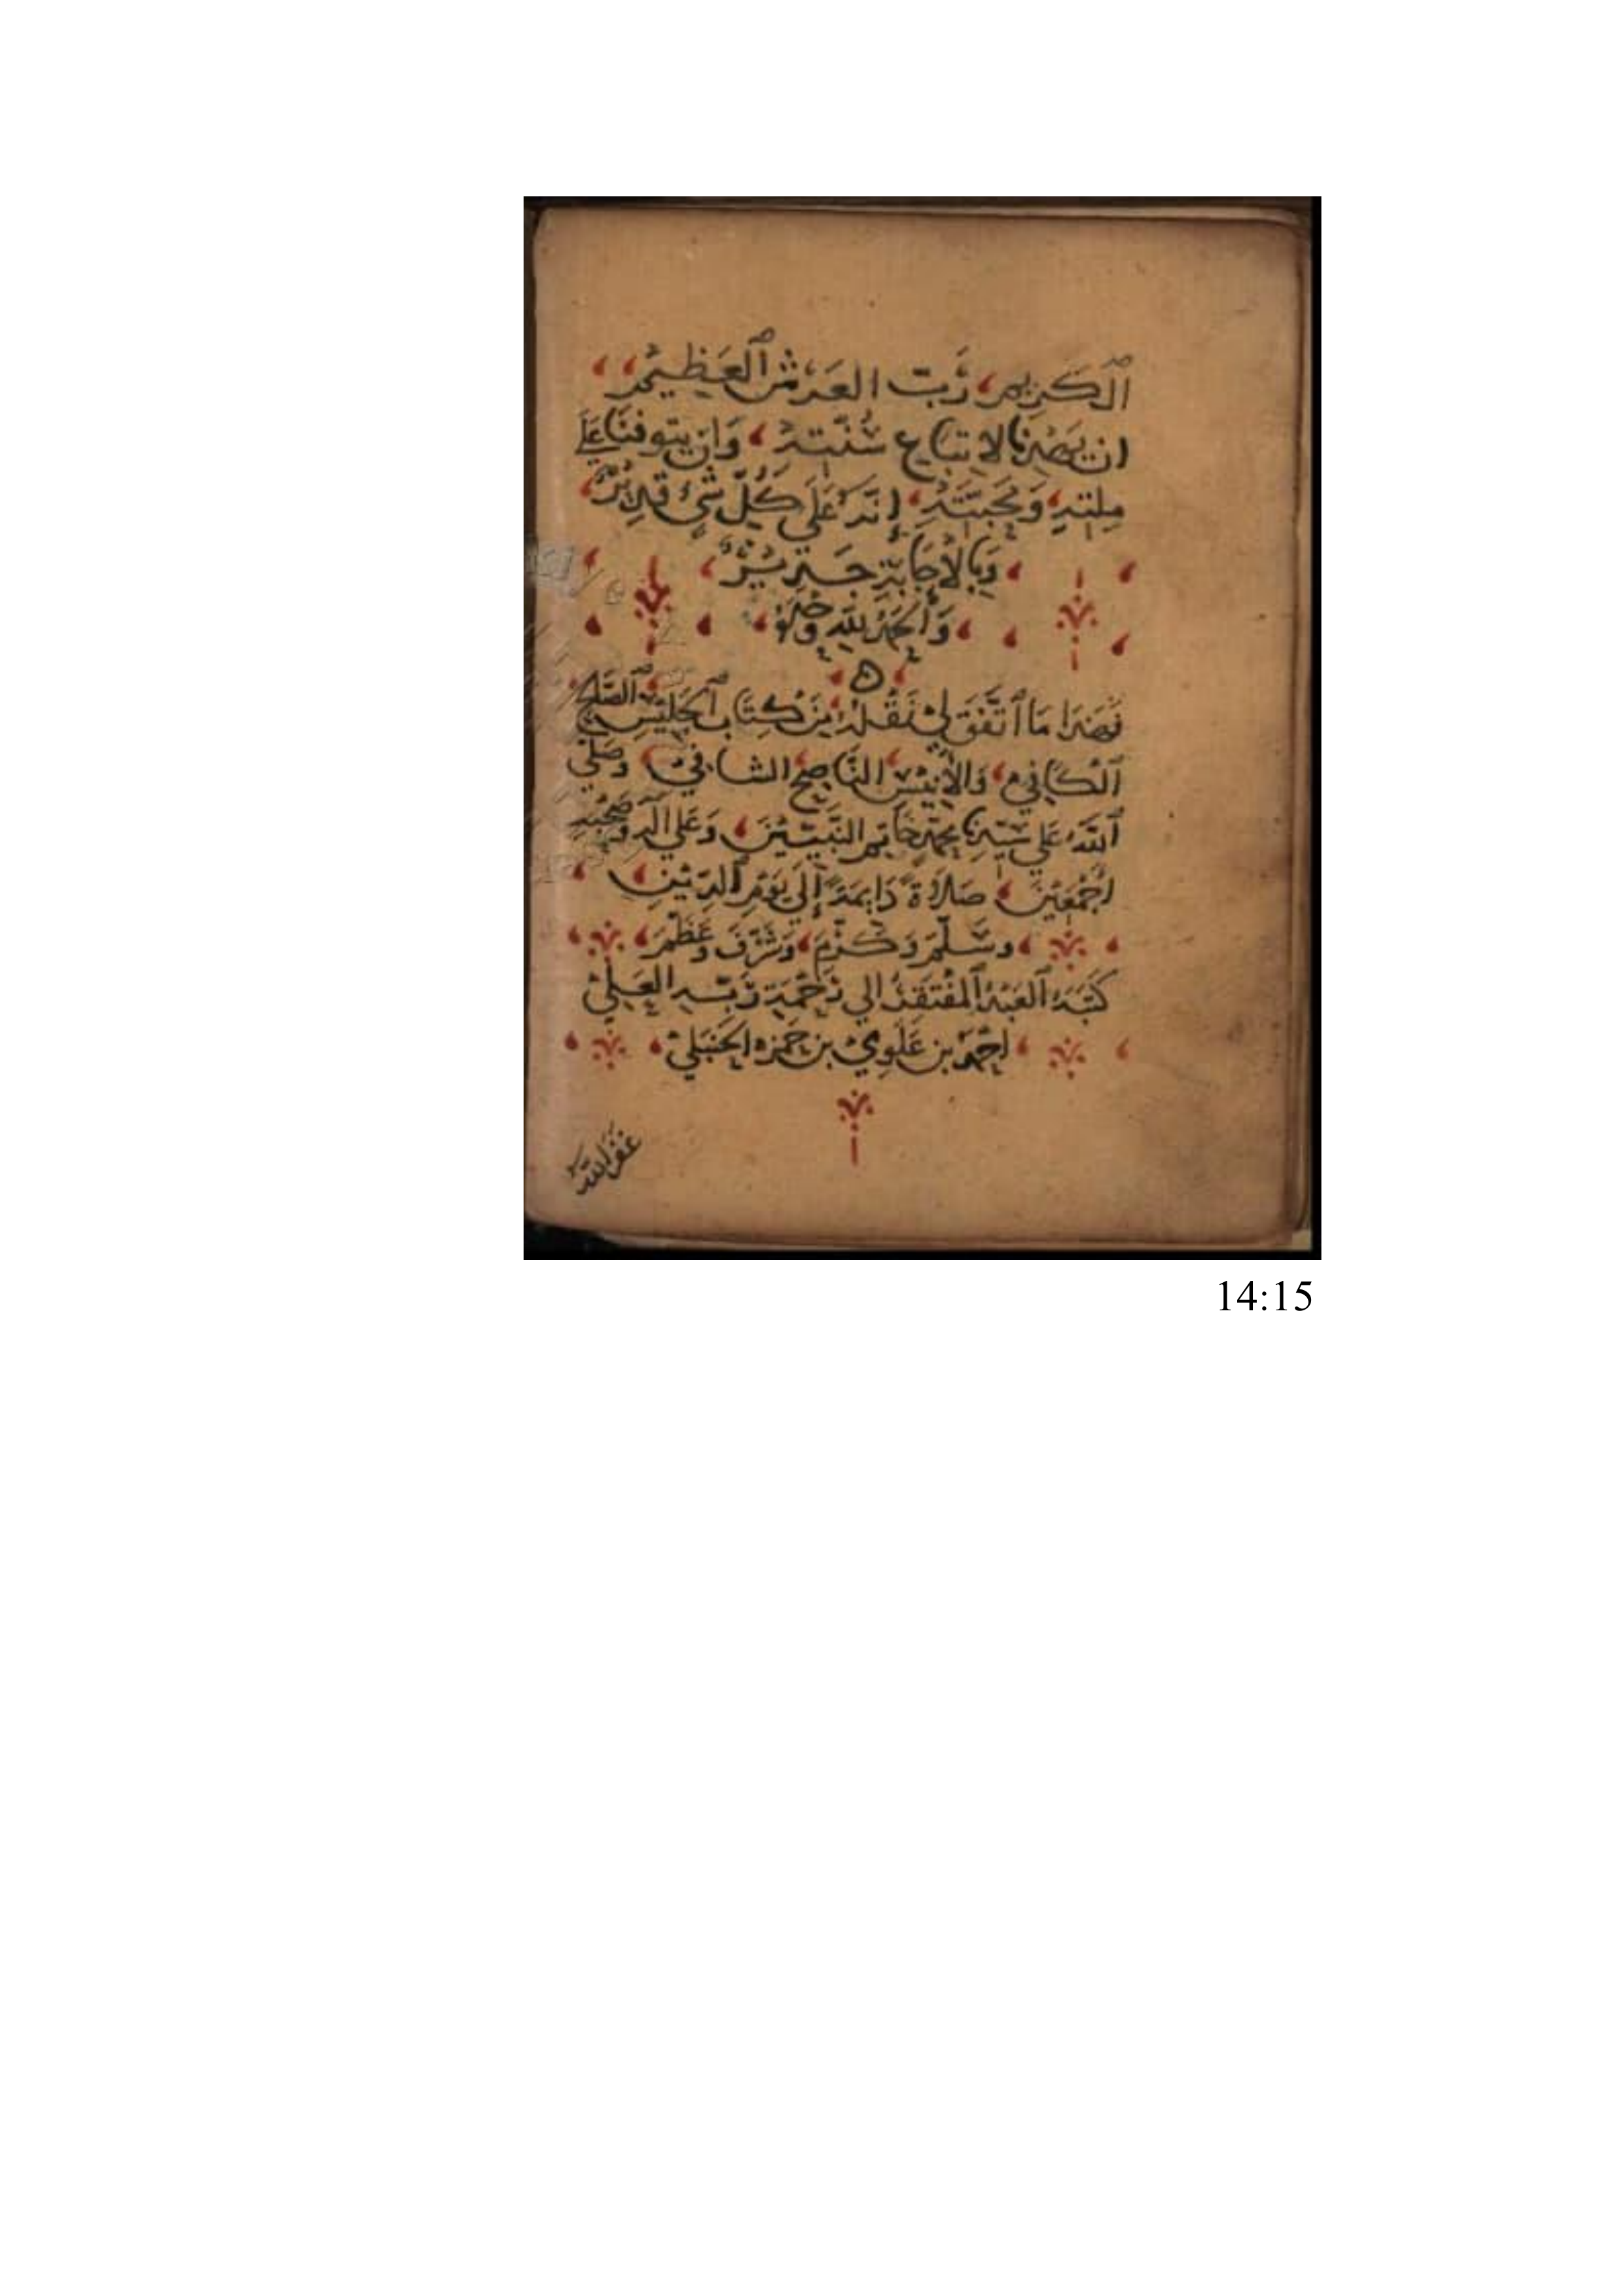 ٱلكَرِيمِ رَبّ العَرْشِ ٱلعَظِيمِ
ان يهدنا لاتباع سُنّتِهِ وَان يتوفنا عَلَى
مِلتِهِ وَمَحَبّتِهِ إِنّهُ عَلَى كُلّ شَيْءٍ قَدِيْرٌ
وَبِالإجَابَةِ جَدِيْرٌ
وَالحَمْدُ لِلّهِ وَحْدَهُ
ه
فَهَذا مَا ٱتّفَقَ لِيْ نَقْلُهُ مِنْ كِتَابِ ٱلجَلِيْسِ ٱلصّالِحِ
ٱلكَافِيْ وَالأنِيْسِ النّاصِحِ الشافِيْ وَصَلّى
ٱللّهُ عَلَى سَيّدِنَا مُحَمّدٍ خَاتِمِ النَّبِيّيْنَ وَعَلَى آلِهِ وَصَحْبِهِ
اجْمَعِيْنَ صَلاَةً دَايِمَةً إِلَى يَوْمِ ٱلدِّيْنِ
وَسَلَّمَ وَكَرَّمَ وَشَرَّفَ وَعَظَّمَ
كَتَبَهُ ٱلعَبْدُ ٱلمُفْتَقِرُ الي رَحْمَةِ رَبّهِ العَلِيْ
احْمَدُ بن عَلَوِيْ بن حَمْزه الحَنْبَلِيْ
غفر الله
14:15